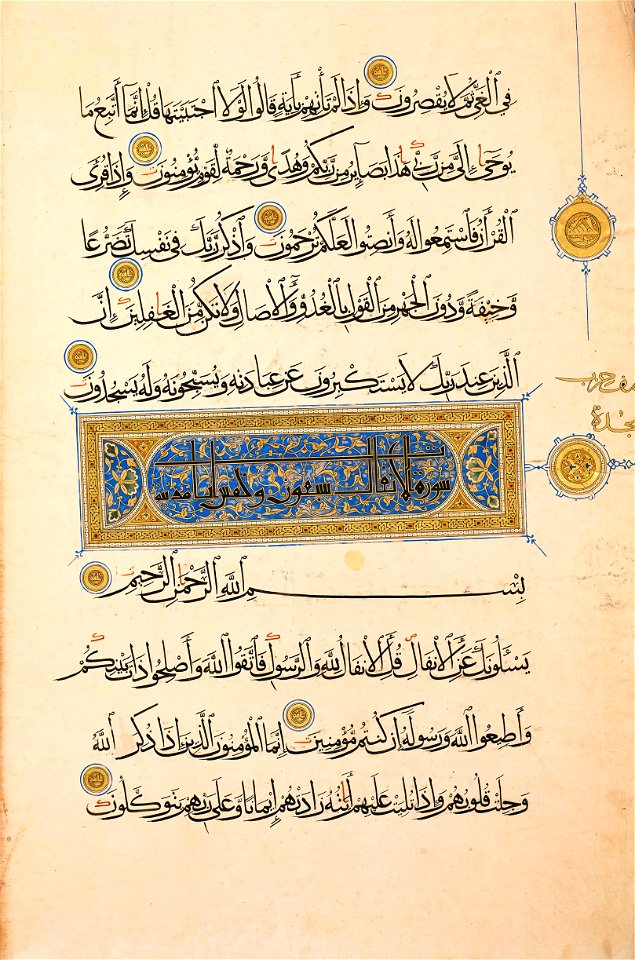 فِي ٱلْغَيِّ ثُمَّ لَا يُقْصِرُونَ وَإِذَا لَمْ تَأْتِهِمْ بِآيَةٍ قَالُوا لَوْلَا ٱجْتَبَيْتَهَا قُلْ إِنَّمَا أَتَّبِعُ مَا
يُوحَىٰ إِلَيَّ مِنْ رَبِّي هَٰذَا بَصَائِرُ مِنْ رَبِّكُمْ وَهُدًى وَرَحْمَةٌ لِقَوْمٍ يُؤْمِنُونَ وَإِذَا قُرِئَ
ٱلْقُرْآنُ فَٱسْتَمِعُوا لَهُ وَأَنْصِتُوا لَعَلَّكُمْ تُرْحَمُونَ وَٱذْكُرْ رَبَّكَ فِي نَفْسِكَ تَضَرُّعًا
وَخِيفَةً وَدُونَ ٱلْجَهْرِ مِنَ ٱلْقَوْلِ بِٱلْغُدُوِّ وَٱلْآصَالِ وَلَا تَكُنْ مِنَ ٱلْغَافِلِينَ إِنَّ
ٱلَّذِينَ عِنْدَ رَبِّكَ لَا يَسْتَكْبِرُونَ عَنْ عِبَادَتِهِ وَيُسَبِّحُونَهُ وَلَهُ يَسْجُدُونَ
سجدة
سورة الانفال سبعون وخمس ايات مدنية
بِسْمِ ٱللَّهِ ٱلرَّحْمَٰنِ ٱلرَّحِيمِ
يَسْـَٔلُونَكَ عَنِ ٱلْأَنْفَالِ قُلِ ٱلْأَنْفَالُ لِلَّهِ وَٱلرَّسُولِ فَٱتَّقُوا ٱللَّهَ وَأَصْلِحُوا ذَاتَ بَيْنِكُمْ
وَأَطِيعُوا ٱللَّهَ وَرَسُولَهُ إِنْ كُنْتُمْ مُؤْمِنِينَ إِنَّمَا ٱلْمُؤْمِنُونَ ٱلَّذِينَ إِذَا ذُكِرَ ٱللَّهُ
وَجِلَتْ قُلُوبُهُمْ وَإِذَا تُلِيَتْ عَلَيْهِمْ آيَاتُهُ زَادَتْهُمْ إِيمَانًا وَعَلَىٰ رَبِّهِمْ يَتَوَكَّلُونَ